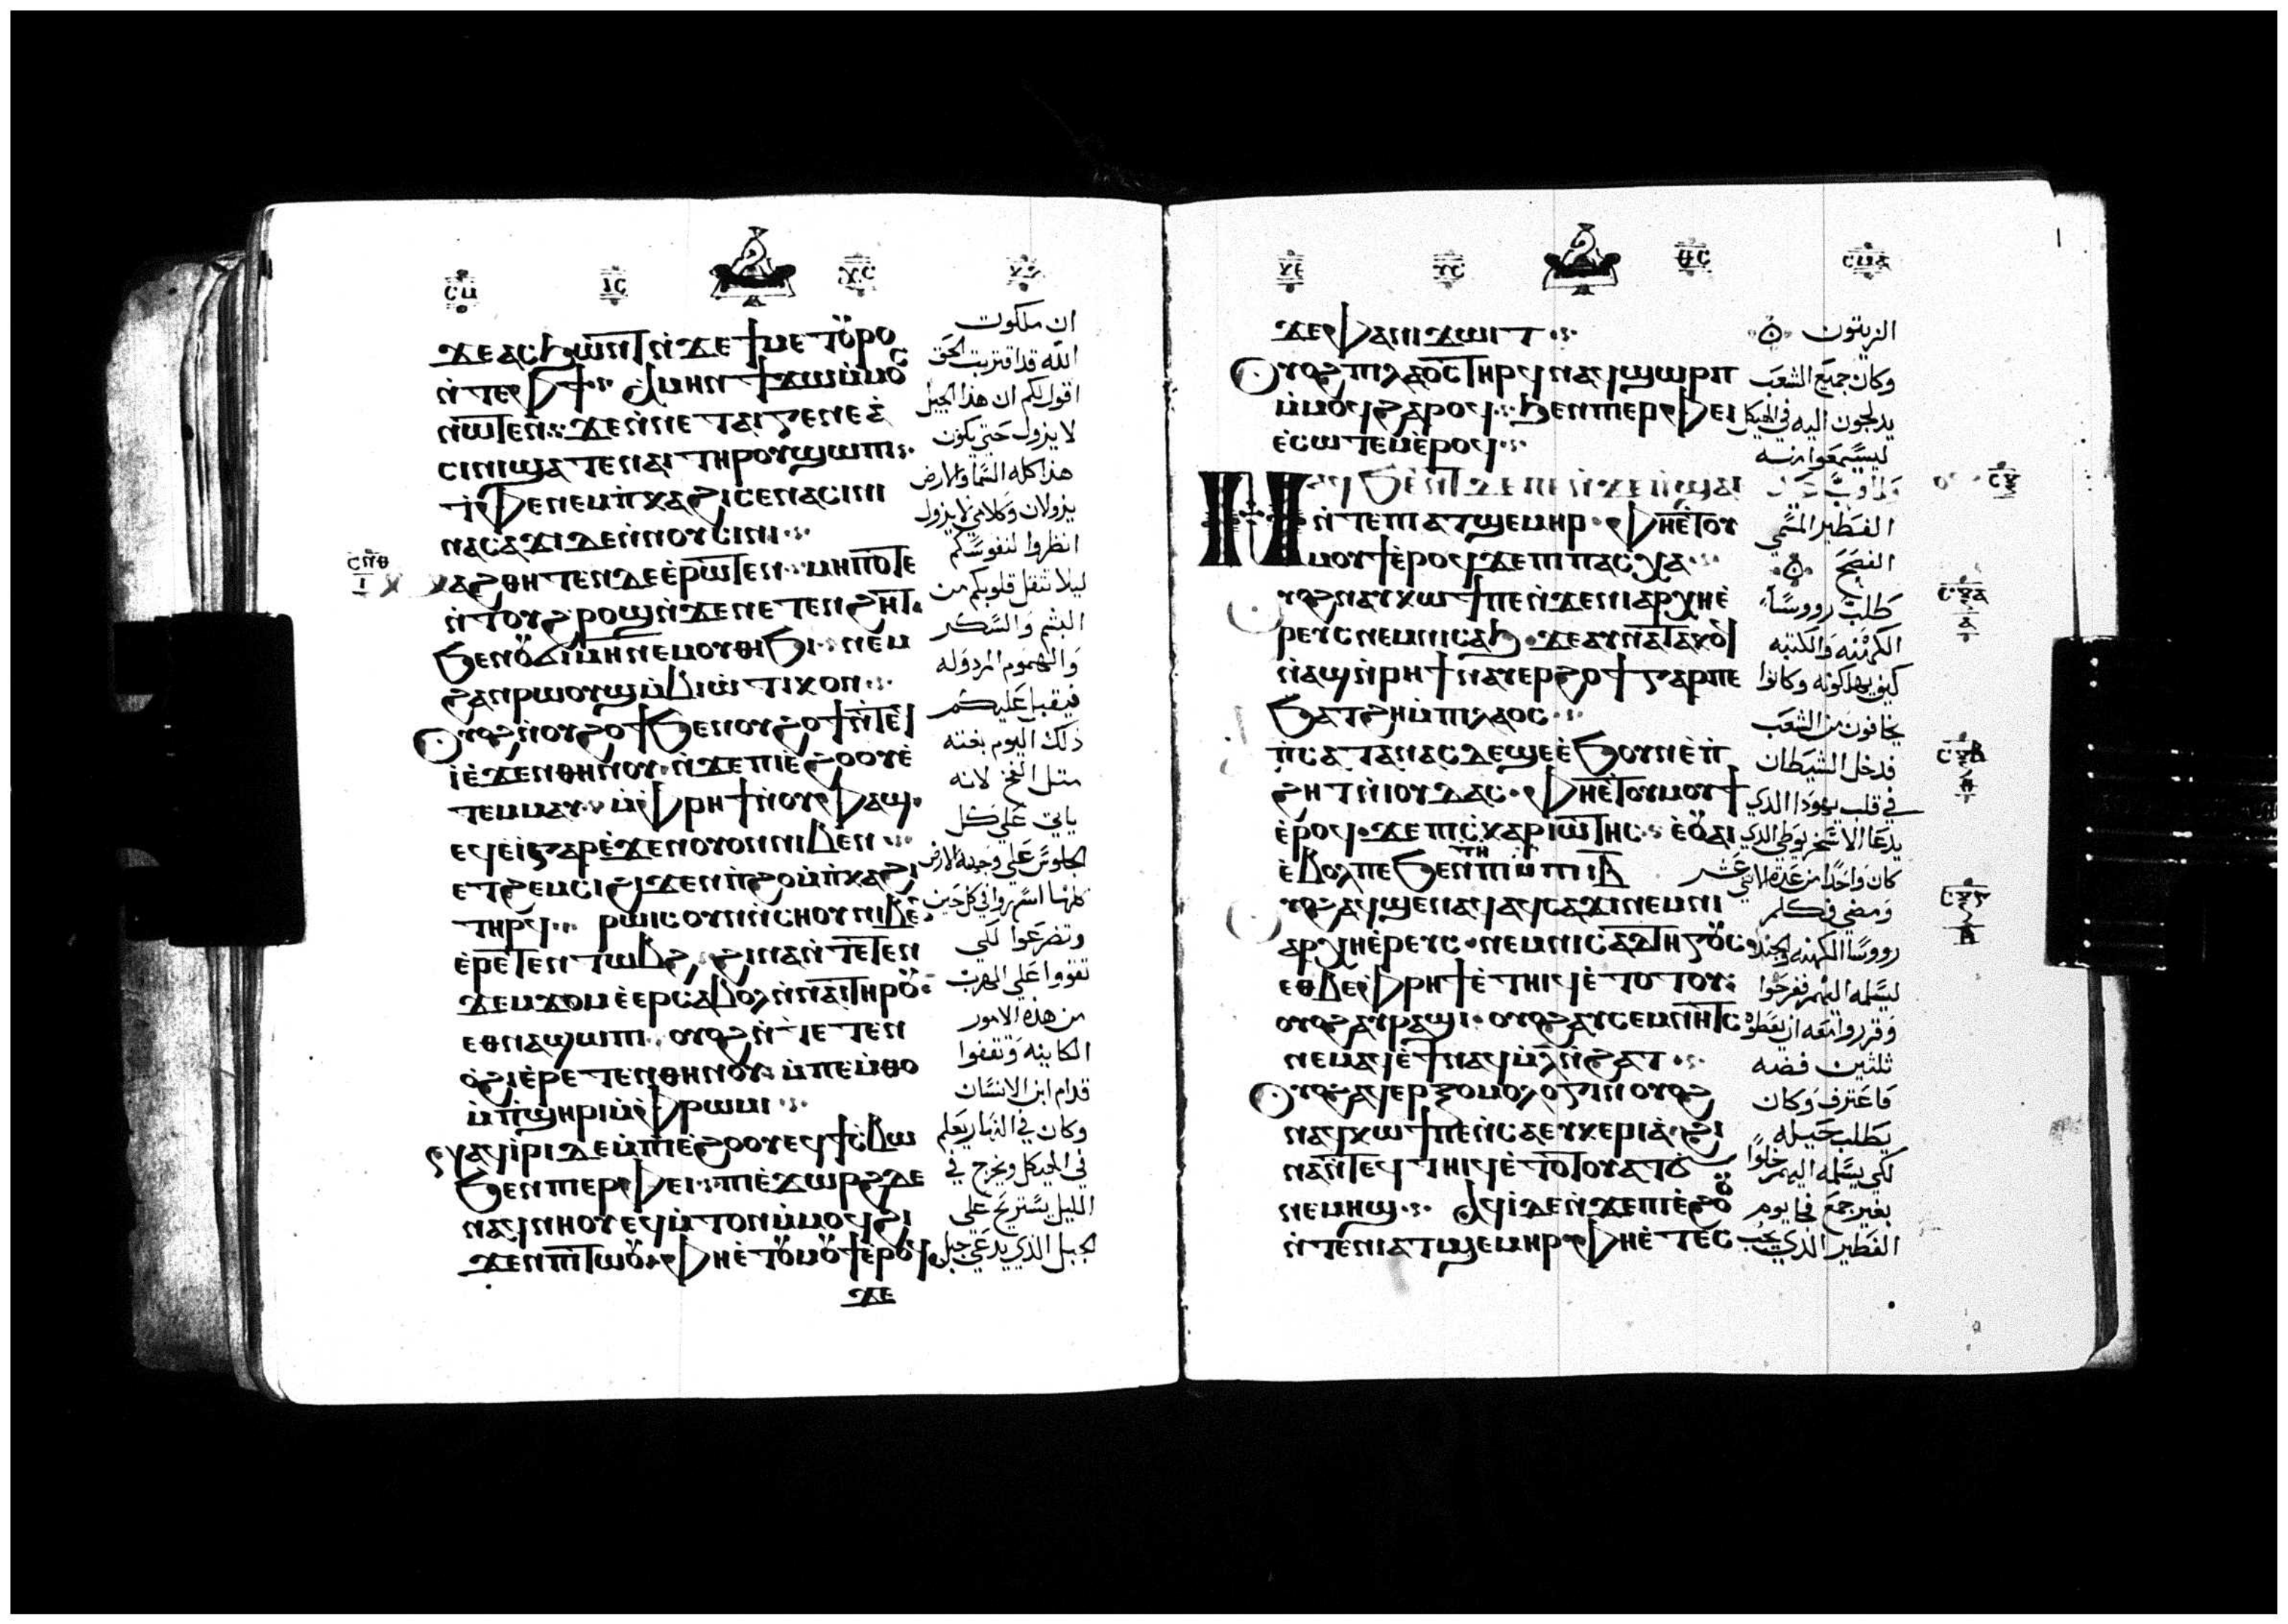 ⲥⲙ ⲓⲥ ⲭⲥ
ϫⲉ ⲁⲥϧⲱⲛⲧ ⲛ̀ϫⲉ ϯⲙⲉⲧⲟⲩⲣⲟ
ⲛ̀ⲧⲉ ⲫϯ ⲁⲙⲏⲛ ϯϫⲱ ⲙ̀ⲙⲟⲥ
ⲛⲱⲧⲉⲛ ϫⲉ ⲛ̀ⲛⲉ ⲧⲁⲓⲅⲉⲛⲉⲁ̀
ⲥⲓⲛⲓ ϣⲁⲧⲉ ⲛⲁⲓ ⲧⲏⲣⲟⲩ ϣⲱⲡⲓ
ⲧ̀ⲫⲉ ⲛⲉⲙ ⲡ̀ⲕⲁϩⲓ ⲥⲉⲛⲁⲥⲓⲛⲓ
ⲛⲁⲥⲁϫⲓ ⲇⲉ ⲛ̀ⲛⲟⲩⲥⲓⲛⲓ
ⲥⲡⲑ ⲓ
ⲙⲁϩⲑⲏⲧⲉⲛ ⲇⲉ ⲉ̀ⲣⲱⲧⲉⲛ ⲙⲏⲡⲟⲧⲉ
ⲛ̀ⲧⲟⲩϩⲣⲟϣ ⲛ̀ϫⲉ ⲛⲉⲧⲉⲛϩⲏⲧ
ϧⲉⲛ ⲟⲩⲥⲓⲙⲏ ⲛⲉⲙ ⲟⲩⲑⲓϧⲓ ⲛⲉⲙ
ϩⲁⲛⲣⲱⲟⲩϣ ⲙ̀ⲃⲓⲱⲧⲓⲕⲟⲛ
ⲟⲩⲟϩ ⲛ̀ⲟⲩϩⲟϯ ϧⲉⲛ ⲟⲩϩⲟϯ ⲛ̀ⲧⲉϥ
ⲓ̀ ⲉ̀ϫⲉⲛ ⲑⲏⲛⲟⲩ ⲛ̀ϫⲉ ⲡⲓⲉ̀ϩⲟⲟⲩ ⲉ̀
ⲧⲉⲙⲙⲁⲩ ⲙ̀ⲫⲣⲏϯ ⲛ̀ⲟⲩⲫⲁϣ
ⲉϥⲉ̀ⲓ̀ ⲅⲁⲣ ⲉ̀ϫⲉⲛ ⲟⲩⲟⲛ ⲛⲓⲃⲉⲛ
ⲉⲧϩⲉⲙⲥⲓ ϩⲓϫⲉⲛ ⲡ̀ϩⲟ ⲙ̀ⲡ̀ⲕⲁϩⲓ
ⲧⲏⲣϥ ⲣⲱⲓⲥ ⲟⲩⲛ ⲛ̀ⲥⲏⲟⲩ ⲛⲓⲃⲉ
ⲉ̀ⲣⲉⲧⲉⲛⲧⲱⲃϩ ϩⲓⲛⲁ ⲛ̀ⲧⲉⲧⲉⲛ
ϫⲉⲙϫⲟⲙ ⲉ̀ⲉⲣⲥⲁⲃⲟⲗ ⲛ̀ⲛⲁⲓ ⲧⲏⲣⲟⲩ
ⲉⲑⲛⲁϣⲱⲡⲓ ⲟⲩⲟϩ ⲛ̀ⲧⲉⲧⲉⲛ
ⲟ̀ϩⲓ ⲉ̀ⲣⲉⲧⲉⲛ ⲑⲏⲛⲟⲩ ⲙ̀ⲡⲉⲙ̀ⲑⲟ
ⲙ̀ⲡ̀ϣⲏⲣⲓ ⲙ̀ⲫⲣⲱⲙⲓ
ⲛⲁϥⲓ̀ⲣⲓ ⲇⲉ ⲙ̀ⲡⲓⲉ̀ϩⲟⲟⲩ ⲉϥϯⲥ̀ⲃⲱ
ϧⲉⲛ ⲡⲓⲉⲣⲫⲉⲓ ⲡⲓⲉ̀ϫⲱⲣϩ ⲇⲉ
ⲛⲁϥⲛⲏⲟⲩ ⲉϥⲙ̀ⲧⲟⲛ ⲙ̀ⲙⲟϥ ϩⲓ
ϫⲉⲛ ⲡⲓⲧⲱⲟⲩ ⲫⲏⲉ̀ⲧⲟⲩⲙⲟⲩϯ ⲉ̀ⲣⲟϥ
ϫⲉ
ان ملكوت
الله قد اقتربت الحق
اقول لكم ان هذا الجيل
لا يزول حتي يكون
هذا كله السما والارض
يزولان وكلامي لا يزول
انظروا لنفوسكم
ليلا تثقل قلوبكم من
البشم والسكر
والهموم المردوله
فيقبل عليكم
ذلك اليوم بغته
متل الفخ لانه
ياتي علي كل
الجلوس علي وجه الارض
كلها اسهروا في كل حين
وتضرعوا لكي
تقووا علي الهرب
من هذه الامور
الكاينه وتقفوا
قدام ابن الانسان
وكان في النهار يعلم
في الهيكل ويخرج في
الليل يستريح علي
الجبل الذي يدعي جبل
ⲩⲥ ⲑⲥ ⲥⲙⲁ
ϫⲉ ⲫⲁⲛⲓϫⲱⲓⲧ
ⲟⲩⲟϩ ⲡⲓⲗⲁⲟⲥ ⲧⲏⲣϥ ⲛⲁϥϣⲱⲣⲡ
ⲙ̀ⲙⲟϥ ϩⲁⲣⲟϥ ϧⲉⲛ ⲡⲓⲉⲣⲫⲉⲓ
ⲉ̀ⲥⲱⲧⲉⲙ ⲉ̀ⲣⲟϥ
ⲛⲁϥϧⲉⲛⲧ ⲇⲉ ⲡⲉ ⲛ̀ϫⲉ ⲡ̀ϣⲁⲓ
ⲛ̀ⲧⲉ ⲡⲓⲁⲧϣⲉⲙⲏⲣ ⲫⲏⲉ̀ⲧⲟⲩ
ⲙⲟⲩϯ ⲉ̀ⲣⲟϥ ϫⲉ ⲡⲓⲡⲁⲥⲭⲁ
ⲟⲩⲟϩ ⲛⲁⲩⲕⲱϯ ⲡⲉ ⲛ̀ϫⲉ ⲛⲓⲁⲣⲭⲏⲉ̀
ⲣⲉⲩⲥ ⲛⲉⲙ ⲛⲓⲥⲁϧ ϫⲉ ⲁⲩⲛⲁⲧⲁⲕⲟϥ
ⲛ̀ⲁϣ ⲛ̀ⲣⲏϯ ⲛⲁⲩⲉⲣϩⲟϯ ⲅⲁⲣ ⲡⲉ
ϧⲁⲧϩⲏ ⲙ̀ⲡⲓⲗⲁⲟⲥ
ⲡ̀ⲥⲁⲧⲁⲛⲁⲥ ⲇⲉ ϣⲉ ⲉ̀ϧⲟⲩⲛ ⲉ̀ⲡ̀
ϩⲏⲧ ⲛ̀ⲓⲟⲩⲇⲁⲥ ⲫⲏⲉ̀ⲧⲟⲩⲙⲟⲩϯ
ⲉ̀ⲣⲟϥ ϫⲉ ⲡⲓⲥⲕⲁⲣⲓⲱⲧⲏⲥ ⲉ̀ⲟⲩⲁⲓ
ⲉ̀ⲃⲟⲗ ⲡⲉ ϧⲉⲛ ⲧⲏⲡⲓ ⲙ̀ⲡⲓⲓⲃ
ⲟⲩⲟϩ ⲁϥϣⲉⲛⲁϥ ⲁϥⲥⲁϫⲓ ⲛⲉⲙ ⲛⲓ
ⲁⲣⲭⲏⲉ̀ⲣⲉⲩⲥ ⲛⲉⲙ ⲛⲓⲥⲁⲧⲏⲅⲟⲩⲥ
ⲉⲑⲃⲉ ⲫⲣⲏϯ ⲉ̀ⲧⲏⲓϥ ⲉ̀ⲧⲟⲧⲟⲩ
ⲟⲩⲟϩ ⲁⲩⲣⲁϣⲓ ⲟⲩⲟϩ ⲁⲩⲥⲉⲙⲛⲏⲧⲥ
ⲛⲉⲙⲁϥ ⲉ̀ϯⲛⲁϥ ⲙ̀ⲗ̀ ⲛ̀ϩⲁⲧ
ⲟⲩⲟϩ ⲁϥⲉⲣⲝⲟⲙⲟⲗⲟⲅⲓⲛ ⲟⲩⲟϩ
ⲛⲁϥⲕⲱϯ ⲡⲉ ⲛ̀ⲥⲁ ⲉⲩⲕⲉⲣⲓⲁ̀ ϩⲓ
ⲛⲁ ⲛ̀ⲧⲉϥⲧⲏⲓϥ ⲉ̀ⲧⲟⲧⲟⲩ ⲁⲧϭ
ⲛⲉ ⲙⲏϣ ⲁϥⲓ̀ ⲇⲉ ⲛ̀ϫⲉ ⲡⲓⲉ̀ϩⲟⲟⲩ
ⲛ̀ⲧⲉ ⲛⲓⲁⲧϣⲉⲙⲏⲣ ⲫⲏⲉ̀ⲧⲉⲥ
الزيتون
وكان جميع الشعب
يدلجون اليه في الهيكل
ليسمعوا منه
الفطير المسمي
الفصح
طلب رووسا
الكهنه والكتبه
كيف يهلكونه وكانوا
يخافون من الشعب
فدخل الشيطان
في قلب يهودا الذي
يدعا الاسخريوطي الذي
كان واحدا من عدة الاثني عشر
ومضي فكلم
رووسا الكهنه والجند
ليسلمه اليهم ففرحوا
وقرروا معه ان يعطوه
ثلثين فضه
فاعترف وكان
يطلب حيله
لكي يسلمه اليهم خلوا
بغير جمع فجا يوم
الفطير الذي يجب
ⲥϥ
ⲥϥⲁ ⲁ
ⲥϥⲃ
ⲥϥⲅ